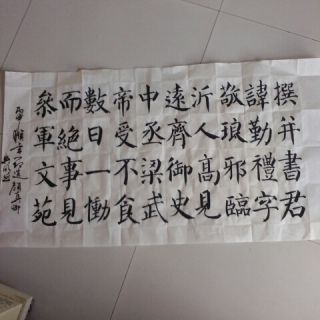 撰并書君
諱勤禮字
敬琅邪臨
沂人高見
遠齊御史
中丞梁武
帝受不食
數日一慟
而絕事見
叅軍文苑